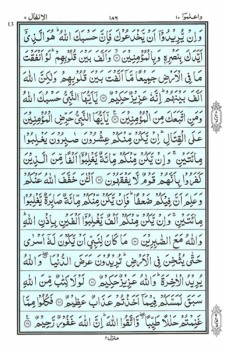 واعلموٓا ١٠
١٨٦
الانفال ٨
13
وَاِنْ يُّرِيْدُوْٓا اَنْ يَّخْدَعُوْكَ فَاِنَّ حَسْبَكَ اللّٰهُ ؕ هُوَ الَّذِيْٓ
اَيَّدَكَ بِنَصْرِهٖ وَبِالْمُؤْمِنِيْنَ ۙ وَاَلَّفَ بَيْنَ قُلُوْبِهِمْ ؕ لَوْ اَنْفَقْتَ
مَا فِي الْاَرْضِ جَمِيْعًا مَّآ اَلَّفْتَ بَيْنَ قُلُوْبِهِمْ وَلٰكِنَّ اللّٰهَ
اَلَّفَ بَيْنَهُمْ ؕ اِنَّهٗ عَزِيْزٌ حَكِيْمٌ ۝ يٰٓاَيُّهَا النَّبِيُّ حَسْبُكَ اللّٰهُ
وَمَنِ اتَّبَعَكَ مِنَ الْمُؤْمِنِيْنَ ۝ يٰٓاَيُّهَا النَّبِيُّ حَرِّضِ الْمُؤْمِنِيْنَ
عَلَى الْقِتَالِ ؕ اِنْ يَّكُنْ مِّنْكُمْ عِشْرُوْنَ صٰبِرُوْنَ يَغْلِبُوْا
مِائَتَيْنِ ۚ وَاِنْ يَّكُنْ مِّنْكُمْ مِّائَةٌ يَّغْلِبُوْٓا اَلْفًا مِّنَ الَّذِيْنَ
كَفَرُوْا بِاَنَّهُمْ قَوْمٌ لَّا يَفْقَهُوْنَ ۝ اَلْـٰٔنَ خَفَّفَ اللّٰهُ عَنْكُمْ
وَعَلِمَ اَنَّ فِيْكُمْ ضَعْفًا ؕ فَاِنْ يَّكُنْ مِّنْكُمْ مِّائَةٌ صَابِرَةٌ يَّغْلِبُوْا
مِائَتَيْنِ ۚ وَاِنْ يَّكُنْ مِّنْكُمْ اَلْفٌ يَّغْلِبُوْٓا اَلْفَيْنِ بِاِذْنِ اللّٰهِ ؕ
وَاللّٰهُ مَعَ الصّٰبِرِيْنَ ۝ مَا كَانَ لِنَبِيٍّ اَنْ يَّكُوْنَ لَهٗٓ اَسْرٰى
حَتّٰى يُثْخِنَ فِي الْاَرْضِ ؕ تُرِيْدُوْنَ عَرَضَ الدُّنْيَا ۖ وَاللّٰهُ
يُرِيْدُ الْاٰخِرَةَ ؕ وَاللّٰهُ عَزِيْزٌ حَكِيْمٌ ۝ لَوْلَا كِتٰبٌ مِّنَ اللّٰهِ
سَبَقَ لَمَسَّكُمْ فِيْمَآ اَخَذْتُمْ عَذَابٌ عَظِيْمٌ ۝ فَكُلُوْا مِمَّا
غَنِمْتُمْ حَلٰلًا طَيِّبًا ۖ وَّاتَّقُوا اللّٰهَ ؕ اِنَّ اللّٰهَ غَفُوْرٌ رَّحِيْمٌ ۝
منزل ٢